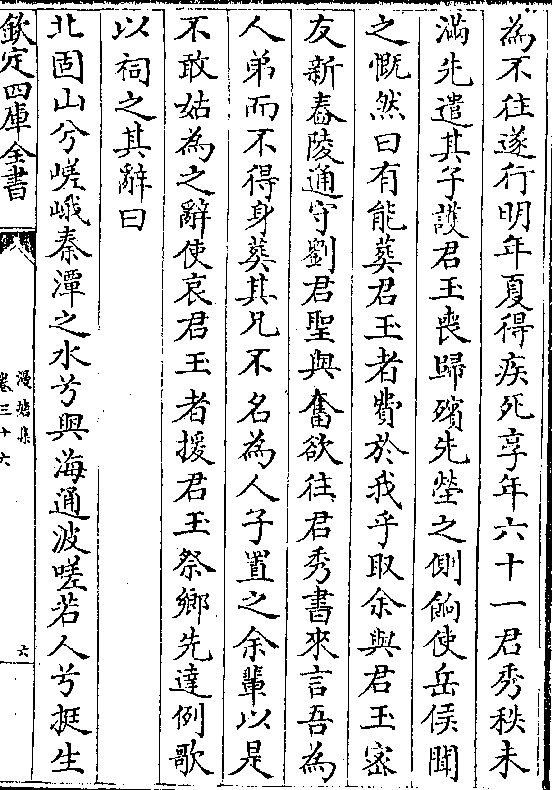 為不往遂行明年夏得疾死享年六十一君秀秩未
滿先遣其子護君玉喪歸殯先塋之側餉使岳侯聞
之慨然曰有能葬君玉者費於我乎取余與君玉密
友新舂陵通守劉君聖與奮欲往君秀書來言吾為
人弟而不得身葬其兄不名為人子置之余輩以是
不敢姑為之辭使哀君玉者援君玉祭鄉先達例歌
以祠之其辭曰
北固山兮嵯峨秦潭之水兮與海通波嗟若人兮挺生
欽定四庫全書
漫塘集
卷三十六
六